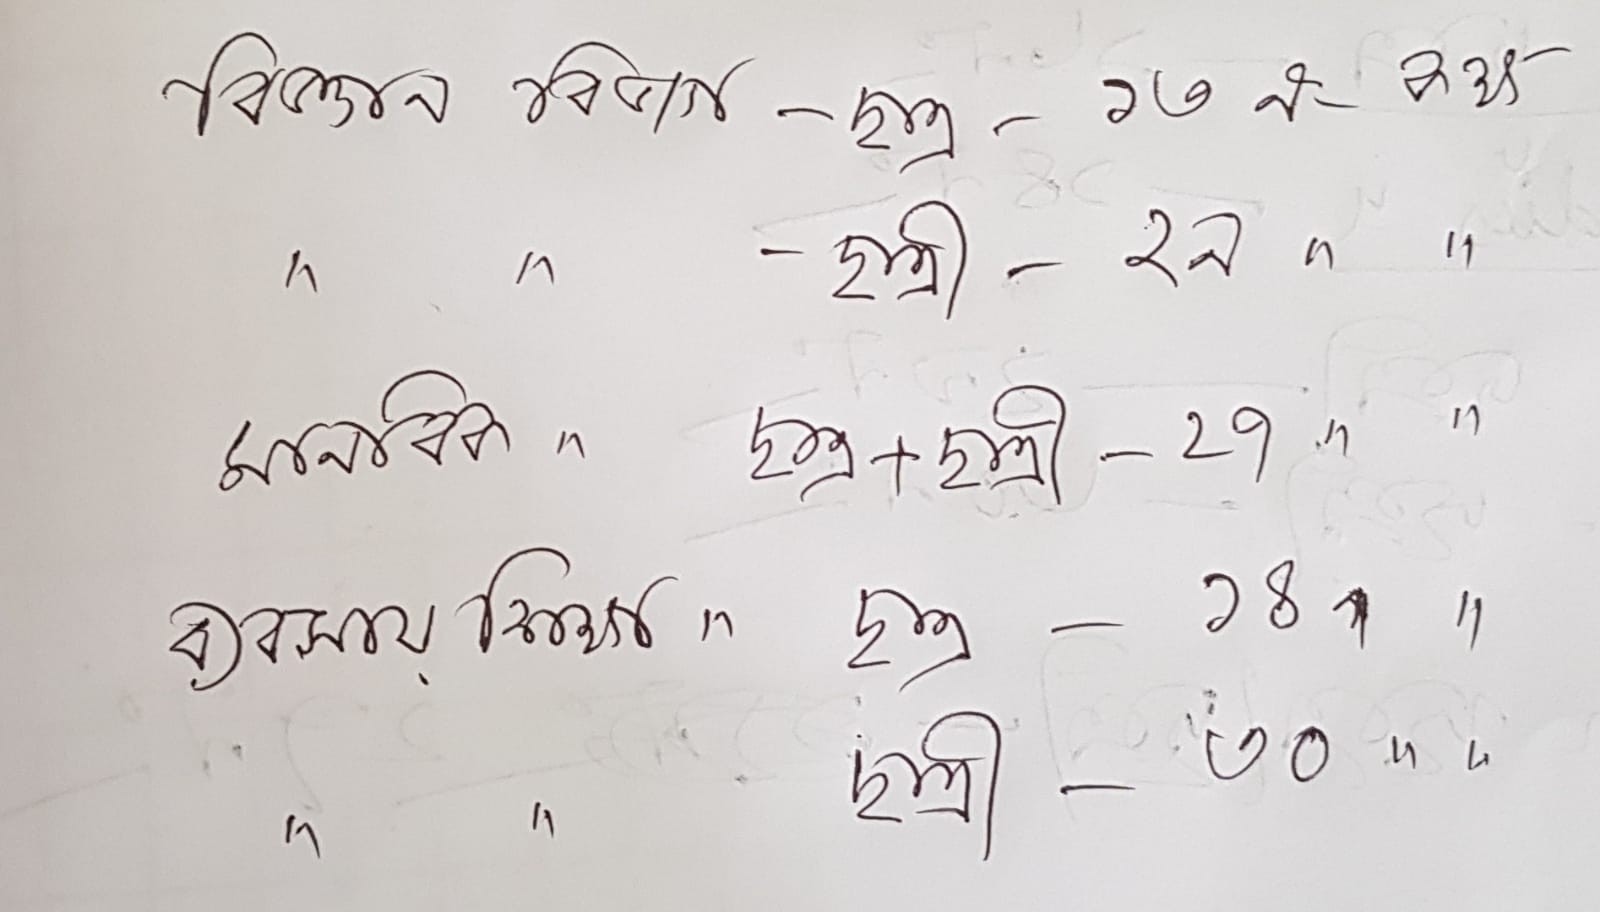 বিজ্ঞান বিভাগ - ছাত্র - ১৩ নং কক্ষ
" " - ছাত্রী - ২৯ " "
মানবিক " ছাত্র + ছাত্রী - ২৭ " "
ব্যবসায় শিক্ষা " ছাত্র - ১৪ " "
" " ছাত্রী - ৩০ " "